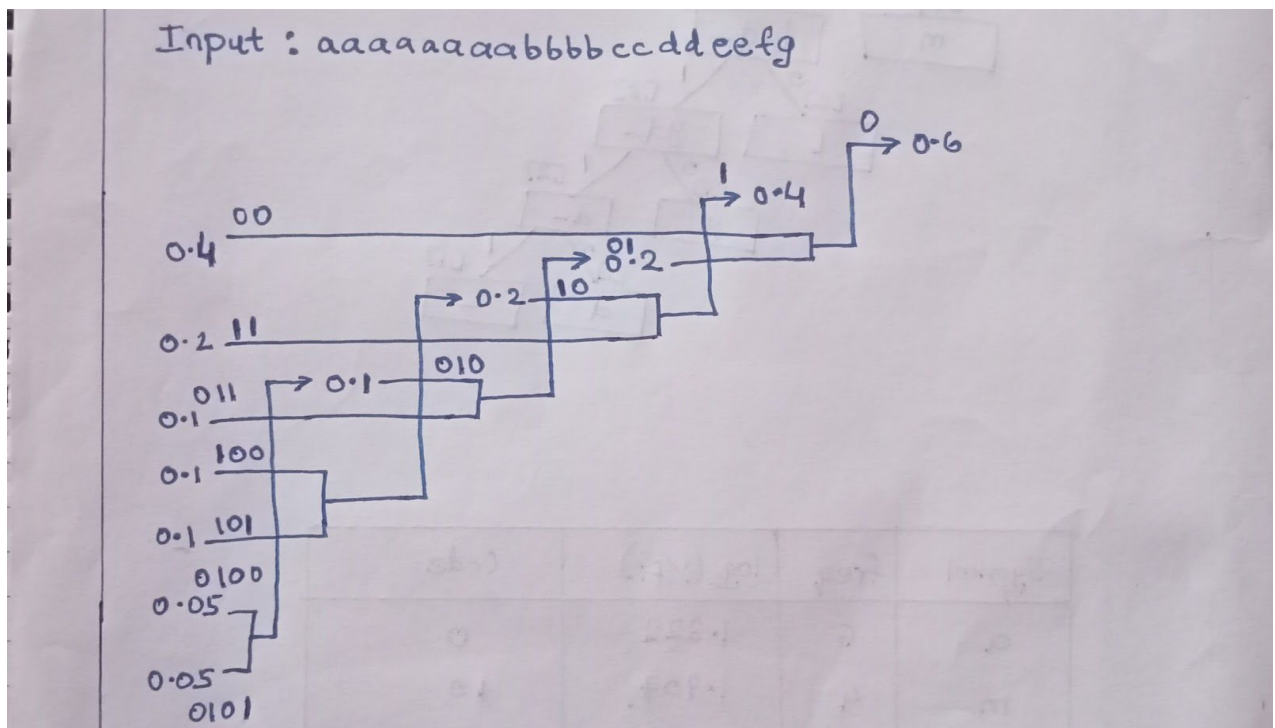 Input : aaaaaaaabbbbccddeefg
0
0.6
1
0.4
00
0.4
01
0.2
0.2 10
0.2 11
010
0.1
011
0.1
100
0.1
0.1 101
0100
0.05
0.05
0101